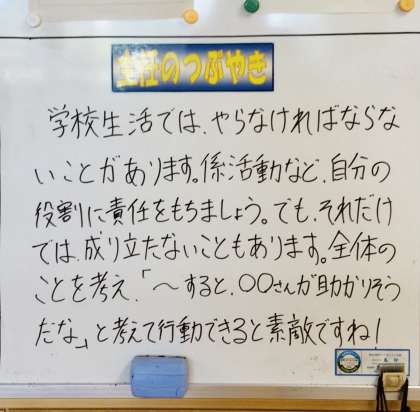 主任のつぶやき
学校生活では、やらなければならな
いことがあります。係活動など、自分の
役割に責任をもちましょう。でも、それだけ
では、成り立たないこともあります。全体の
ことを考え、「～すると、〇〇さんが助かりそう
だな」と考えて行動できると素敵ですね！